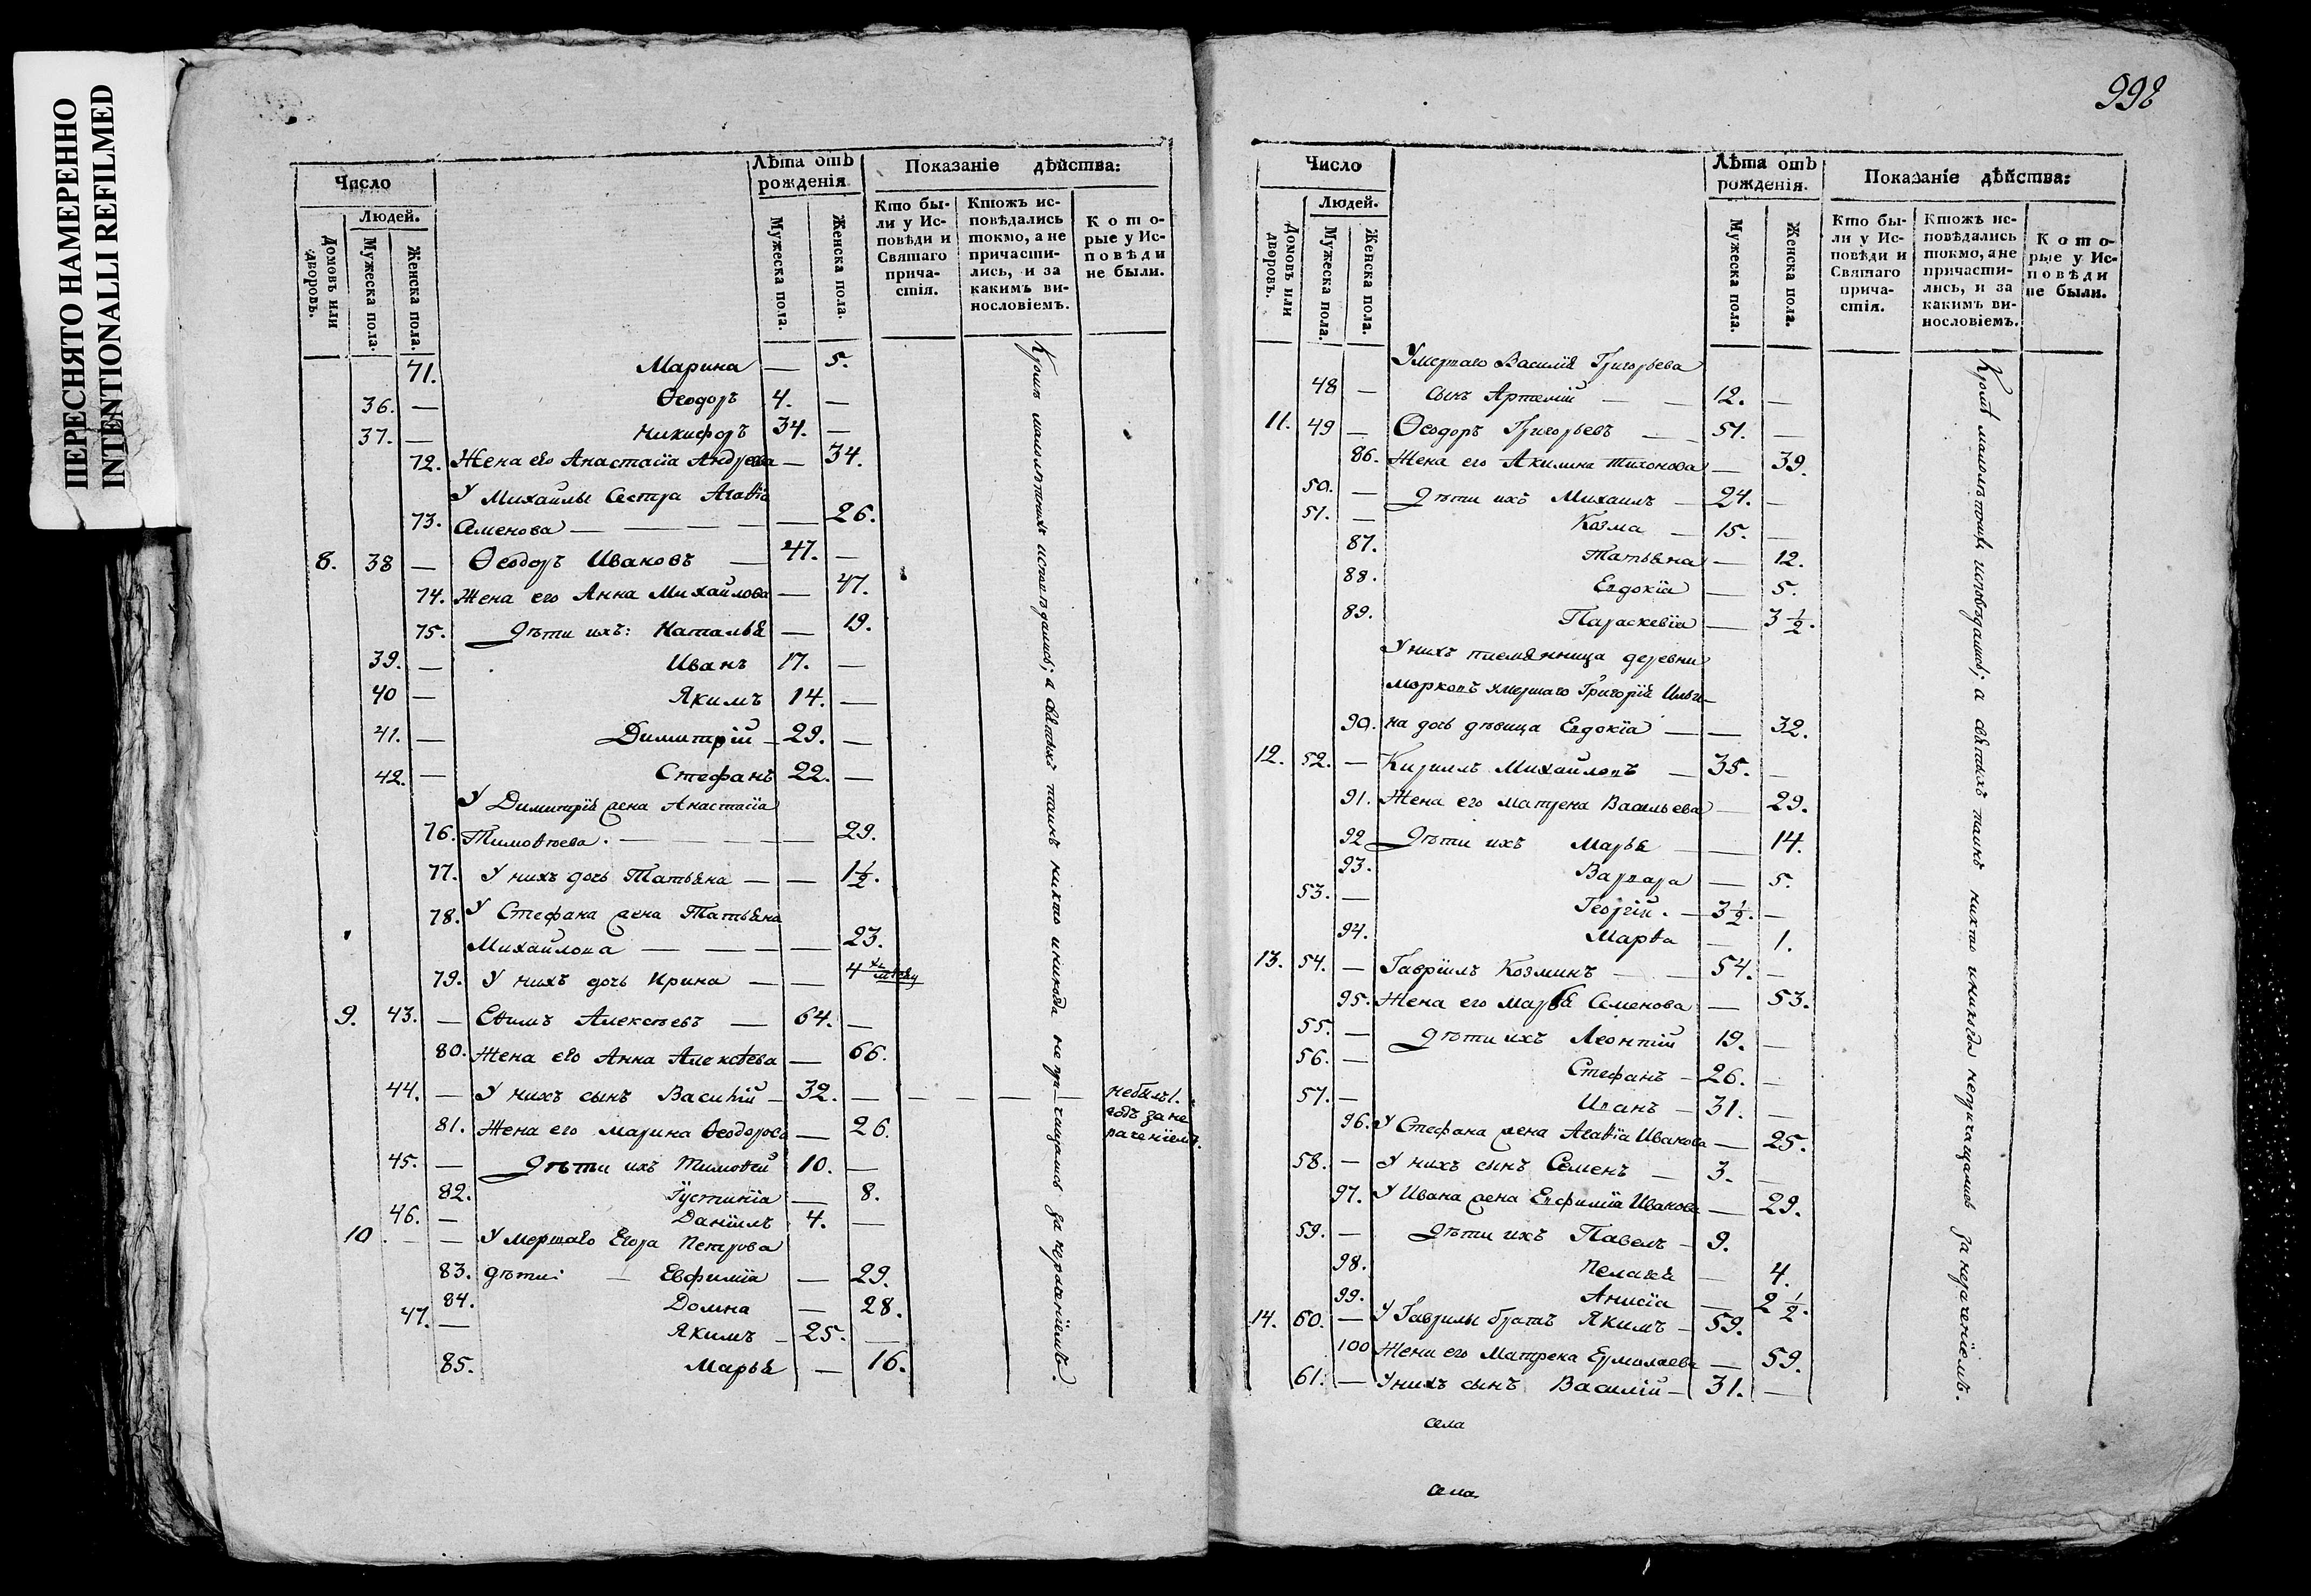 ПЕРЕСНЯТО НАМЕРЕННО
INTENTIONALLI REFILMED
Число
Лѣта отъ рожденія
Показаніе дѣйства:
Людей.
Домовъ или дворовъ.
Мужеска пола.
Женска пола.
Мужеска пола.
Женска пола.
Кто бы-
ли у Ис-
повѣди и
Святаго
прича-
стія.
Ктожъ ис-
повѣдались
токмо, а не
причасти-
лись, и за
какимъ ви-
нословіемъ.
Кото-
рые у Ис-
повѣди
не были.
71. Марина — 5.
36. — Ѳеодоръ 4. —
37. — Никифоръ 34. —
72. Жена его Анастасїа Андреева — 34.
У Михайлы сестра Агаѳїа
73. Семенова — — — — 26.
8. 38 — Ѳеодоръ Ивановъ — 47. —
74. Жена его Анна Михайлова — 47.
75. Дѣти ихъ: Наталья — 19.
39. — Иванъ 17. —
40 — Якимъ 14. —
41. — Димитрій — 29. —
42. — Стефанъ 22. —
У Димитрїя жена Анастасїа
76. Тимоѳѣева. — — — — 29.
77. У нихъ дочь Татьяна — — 1½.
78. У Стефана жена Татьяна
Михайлова — — — — 23.
79. У нихъ дочь Ирина — — 4
9. 43. — Еѳимъ Алексѣевъ — 64. —
80. Жена его Анна Алексѣева — 66.
44. — У нихъ сынъ Василій — 32. — — — — — небылъ 1.
годъ за не
раченїемъ.
81. Жена его Марина Ѳеодорова — 26.
45. — Дѣти ихъ Тимоѳей 10. —
82. Їустинїа — 8.
46. — Данїилъ 4. —
10. — — Умершаго Егора Петрова
83. дѣти: — Евфимїа — 29.
84. Домна — 28.
47. — Якимъ — 25. —
85. Марья — 16.
Кромѣ малолѣтнихъ исповѣдались; а святыхъ таинъ никто иникогда непричащались за нераченїемъ.
998
Число
Лѣта отъ рожденія.
Показаніе дѣйства:
Людей.
Домовъ или дворовъ.
Мужеска пола.
Женска пола.
Мужеска пола.
Женска пола.
Кто бы-
ли у Ис-
повѣди и
Святаго
прича-
стія.
Ктожъ ис-
повѣдались
токмо, а не
причасти-
лись, и за
какимъ ви-
нословіемъ.
Кото-
рые у Ис-
повѣди
не были.
Умершаго Василїя Григорьева
48 — сынъ Артемій — — 12. —
11. 49 — Ѳеодоръ Григорьевъ — 51. —
86. Жена его Акилина Тихонова — 39.
50. — Дѣти ихъ Михаилъ — 24. —
51. — Козма — 15. —
87. Татьяна — 12.
88. Евдокїа — 5.
89. Параскевїа — 3½.
У нихъ племянница деревни
умершаго Григорїя Ильи-
90. на дочь дѣвица Евдокїа — — 32.
12. 52. — Кирилъ Михайловъ — 35. —
91. Жена его Матрена Васильева — 29.
92 Дѣти ихъ Марья — — 14.
93. Варвара — 5.
53. — Георгїй. — 3½. —
94. Марѳа — 1.
13. 54. — Гаврїилъ Козминъ — — 54. —
95. Жена его Марѳа Семенова — 53.
55. — Дѣти ихъ Леонтїй 19. —
56. — Стефанъ — 26. —
57. — Иванъ — 31. —
96. У Стефана жена Агаѳїа Иванова — 25.
58. — У нихъ сынъ Семенъ — 3. —
97. У Ивана жена Евфимїа Иванова — 29.
59. — Дѣти ихъ Павелъ — 9.
98. Пелагея — 4.
99. Анисїа — 2½
14. 60. — У Гаврилы братъ Якимъ — 59.
100 Жена его Матрена Ермолаева — 59.
61. — У нихъ сынъ Василій — 31. —
Кромѣ малолѣтнихъ исповѣдались; а святыхъ таинъ никто иникогда непричащались за нераченїемъ.
села
села